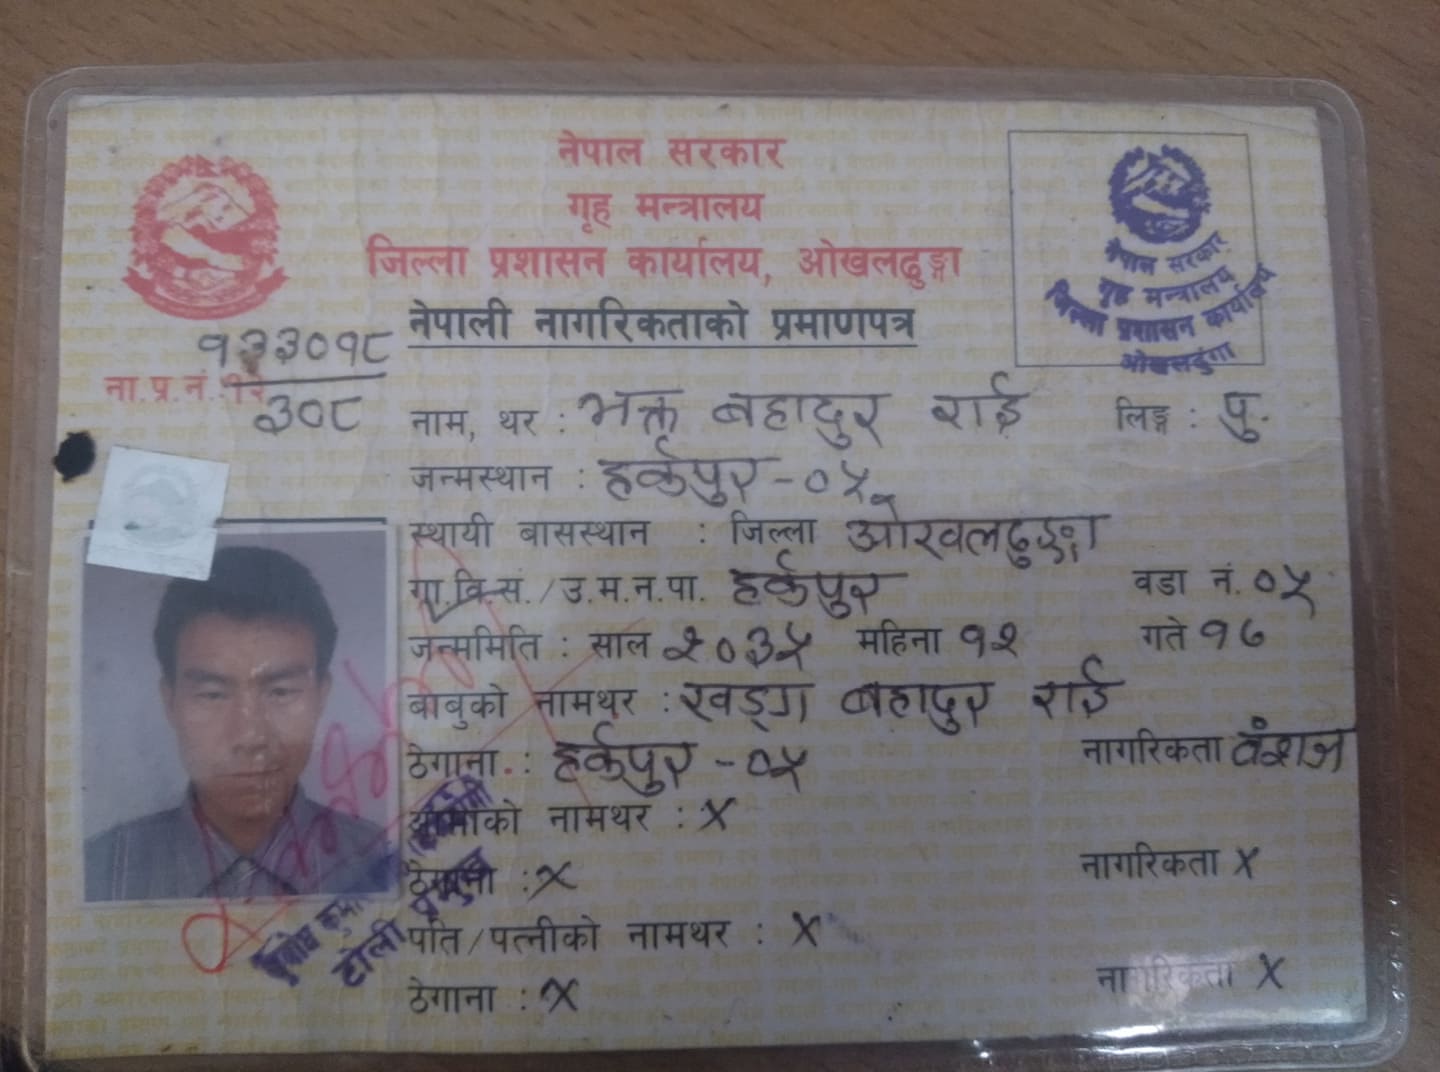 नेपाल सरकार
गृह मन्त्रालय
जिल्ला प्रशासन कार्यालय, ओखलढुङ्गा
नेपाली नागरिकताको प्रमाणपत्र
नेपाल सरकार
गृह मन्त्रालय
जिल्ला प्रशासन कार्यालय
ओखलढुंगा
१३३०१८
ना.प्र.नं.
३०८
नाम, थर : भक्त बहादुर राई लिङ्ग : पु.
जन्मस्थान : हर्कपुर - ०५
स्थायी बासस्थान : जिल्ला ओखलढुङ्गा
गा.वि.सं./उ.म.न.पा. हर्कपुर वडा नं. ०५
जन्ममिति : साल २०३५ महिना १२ गते १७
बाबुको नामथर : खड्ग बहादुर राई
ठेगाना : हर्कपुर - ०५ नागरिकता वंशज
आमाको नामथर : x
ठेगाना : x नागरिकता x
पति/पत्नीको नामथर : x
ठेगाना : x नागरिकता x
टोली प्रमुख